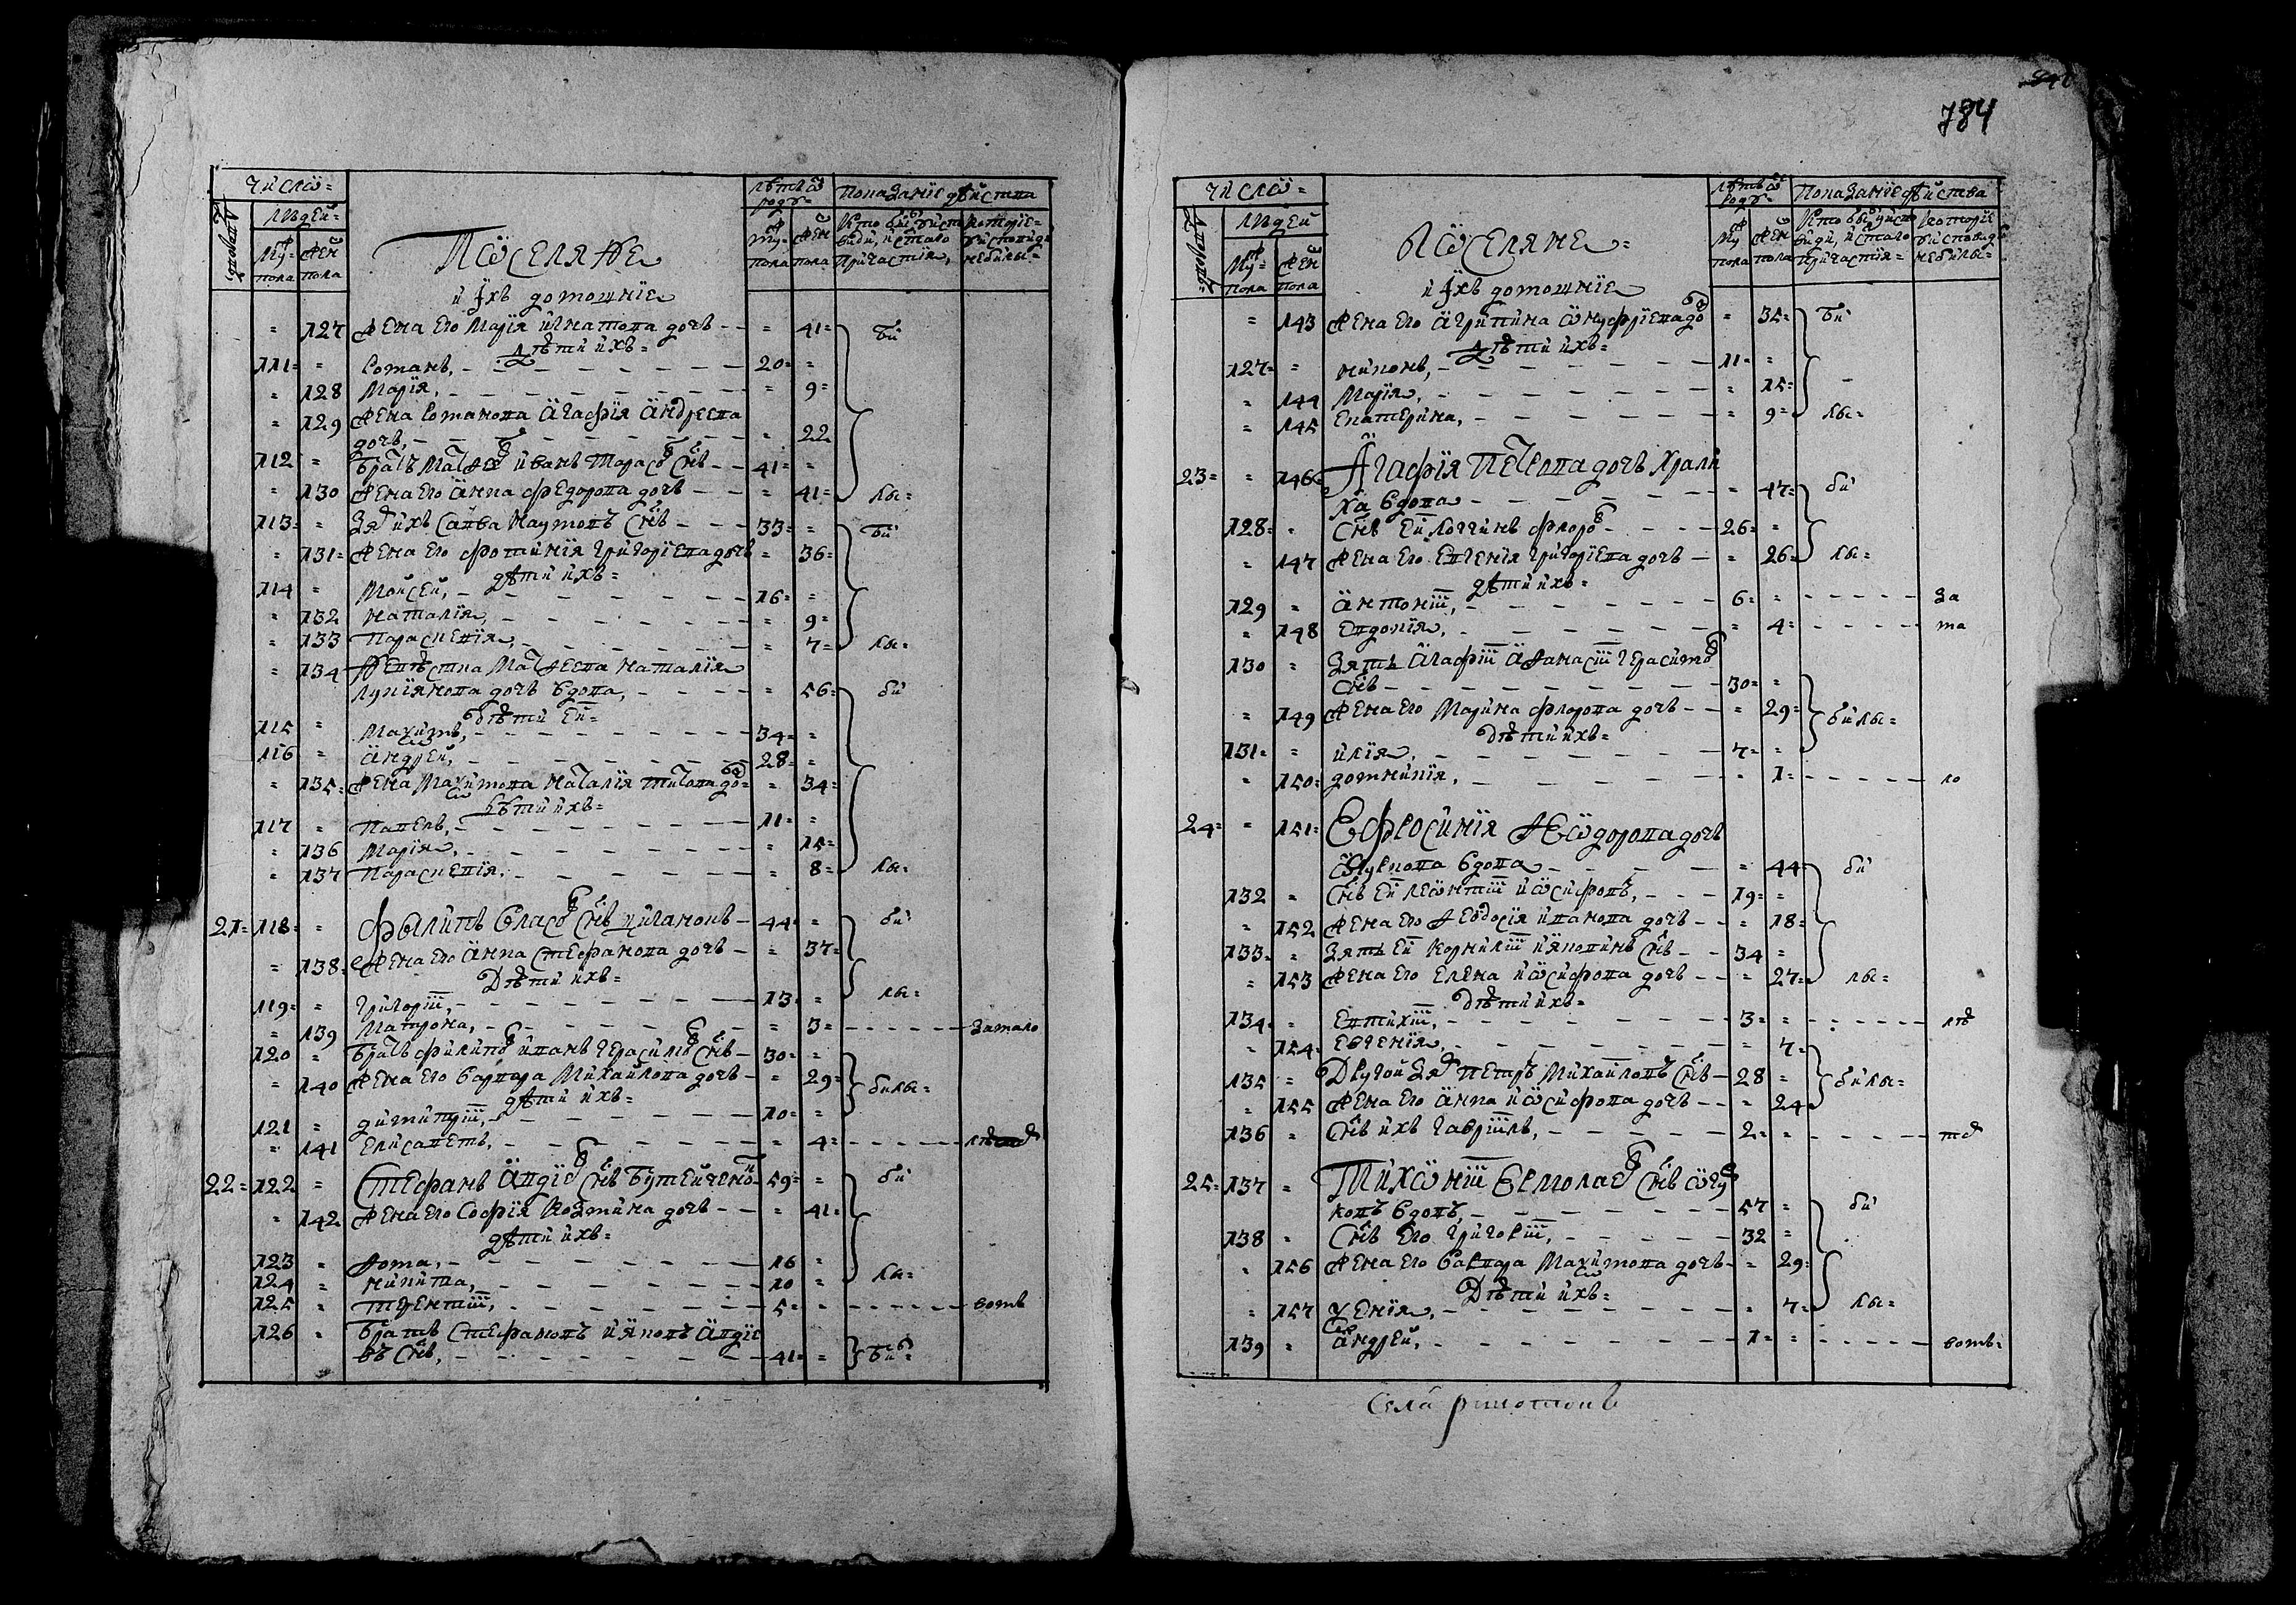 784
Число
людей
Поселяне
и ихъ домошніе
127 жена его Марія игнатова дочь 41 бы
Дѣти ихъ
111 Романъ, 20
128 Марія, 9
129 жена Романова Агафія Андреева
дочь, 22
112 братъ Матѳея иванъ Тарасовъ снъ 41
130 жена его Анна федорова дочь 41 лы
113 Зять ихъ Савва Наумовъ снъ 33 бы
131 жена его фотинія григоріева дочь 36
дѣти ихъ
114 Моисей, 16
132 наталія, 9
133 Параскевія, 7 лы
134 Невѣстка Матѳеева наталія
лукіянова дочь вдова, 56 бы
дѣти ей
115 Махимъ, 34
116 андрей, 28
135 жена Махимова наталія титова дочь 34
дѣти ихъ
117 Павелъ, 11
136 Марія, 15
137 Параскевія, 8 лы
21 118 филипъ Власовъ снъ циганокъ 44 бы
138 жена его анна Стефанова дочь 37
Дѣти ихъ
119 григорій, 13 лы
139 Матрона, 3 за мало
120 братъ филиповъ иванъ герасимовъ снъ 30
140 жена его варвара Михайлова дочь 29 былы
дѣти ихъ
121 димитрій, 10
141 Елисаветъ, 4 лѣт
22 122 Стефанъ Авдіевъ снъ Бутейченко 59 бы
142 жена его Софія Козмина дочь 41
дѣти ихъ
123 ѳома, 16
124 никита, 10 лы
125 терентій, 5 вомъ
126 братъ Стефановъ Іяковъ Авдіе
въ снъ, 41 бы
Число
людей
Поселяне
и ихъ домошніе
143 жена его Агрипина Онуфріева дочь 35 бы
Дѣти ихъ
127 никонъ, 11
144 Марія, 15
145 Екатерина, 9 лы
23 146 Агафія Петрова дочь Храли
ха вдова 47 бы
128 снъ ей логгинъ флоровъ 26
147 жена его Евгенія григоріева дочь 26 лы
дѣти ихъ
129 антоній, 6 за
148 Евдокія, 4 ма
130 Зять Агафіи Аѳанасій герасимовъ
снъ 30
149 жена его Марина флорова дочь 29 былы
дѣти ихъ
131 илія, 7
150 домникія, 1 ло
24 151 Ефросинія Ѳеодорова дочь
Огуркова вдова 44 бы
132 снъ ей леонтій иосифовъ, 19
152 жена его Ѳеодосія иванова дочь 18
133 Зять ей Корнилій иякокинъ снъ 34
153 жена его Елена иосифова дочь 27 лы
дѣти ихъ
134 Евтихій, 3 лѣ
154 Евгенія, 7
135 Другой Зять Петръ Михайловъ снъ 28 былы
155 жена его Анна иосифова дочь 24
136 снъ ихъ гавріилъ, 2 тс
25 137 Тихоній Ермолаевъ снъ огур
ковъ вдовъ, 57 бы
138 снъ его григорій, 32
156 жена его варвара Махимова дочь 29
Дѣти ихъ
157 Ксенія, 7 лы
139 андрей, 1 вомъ